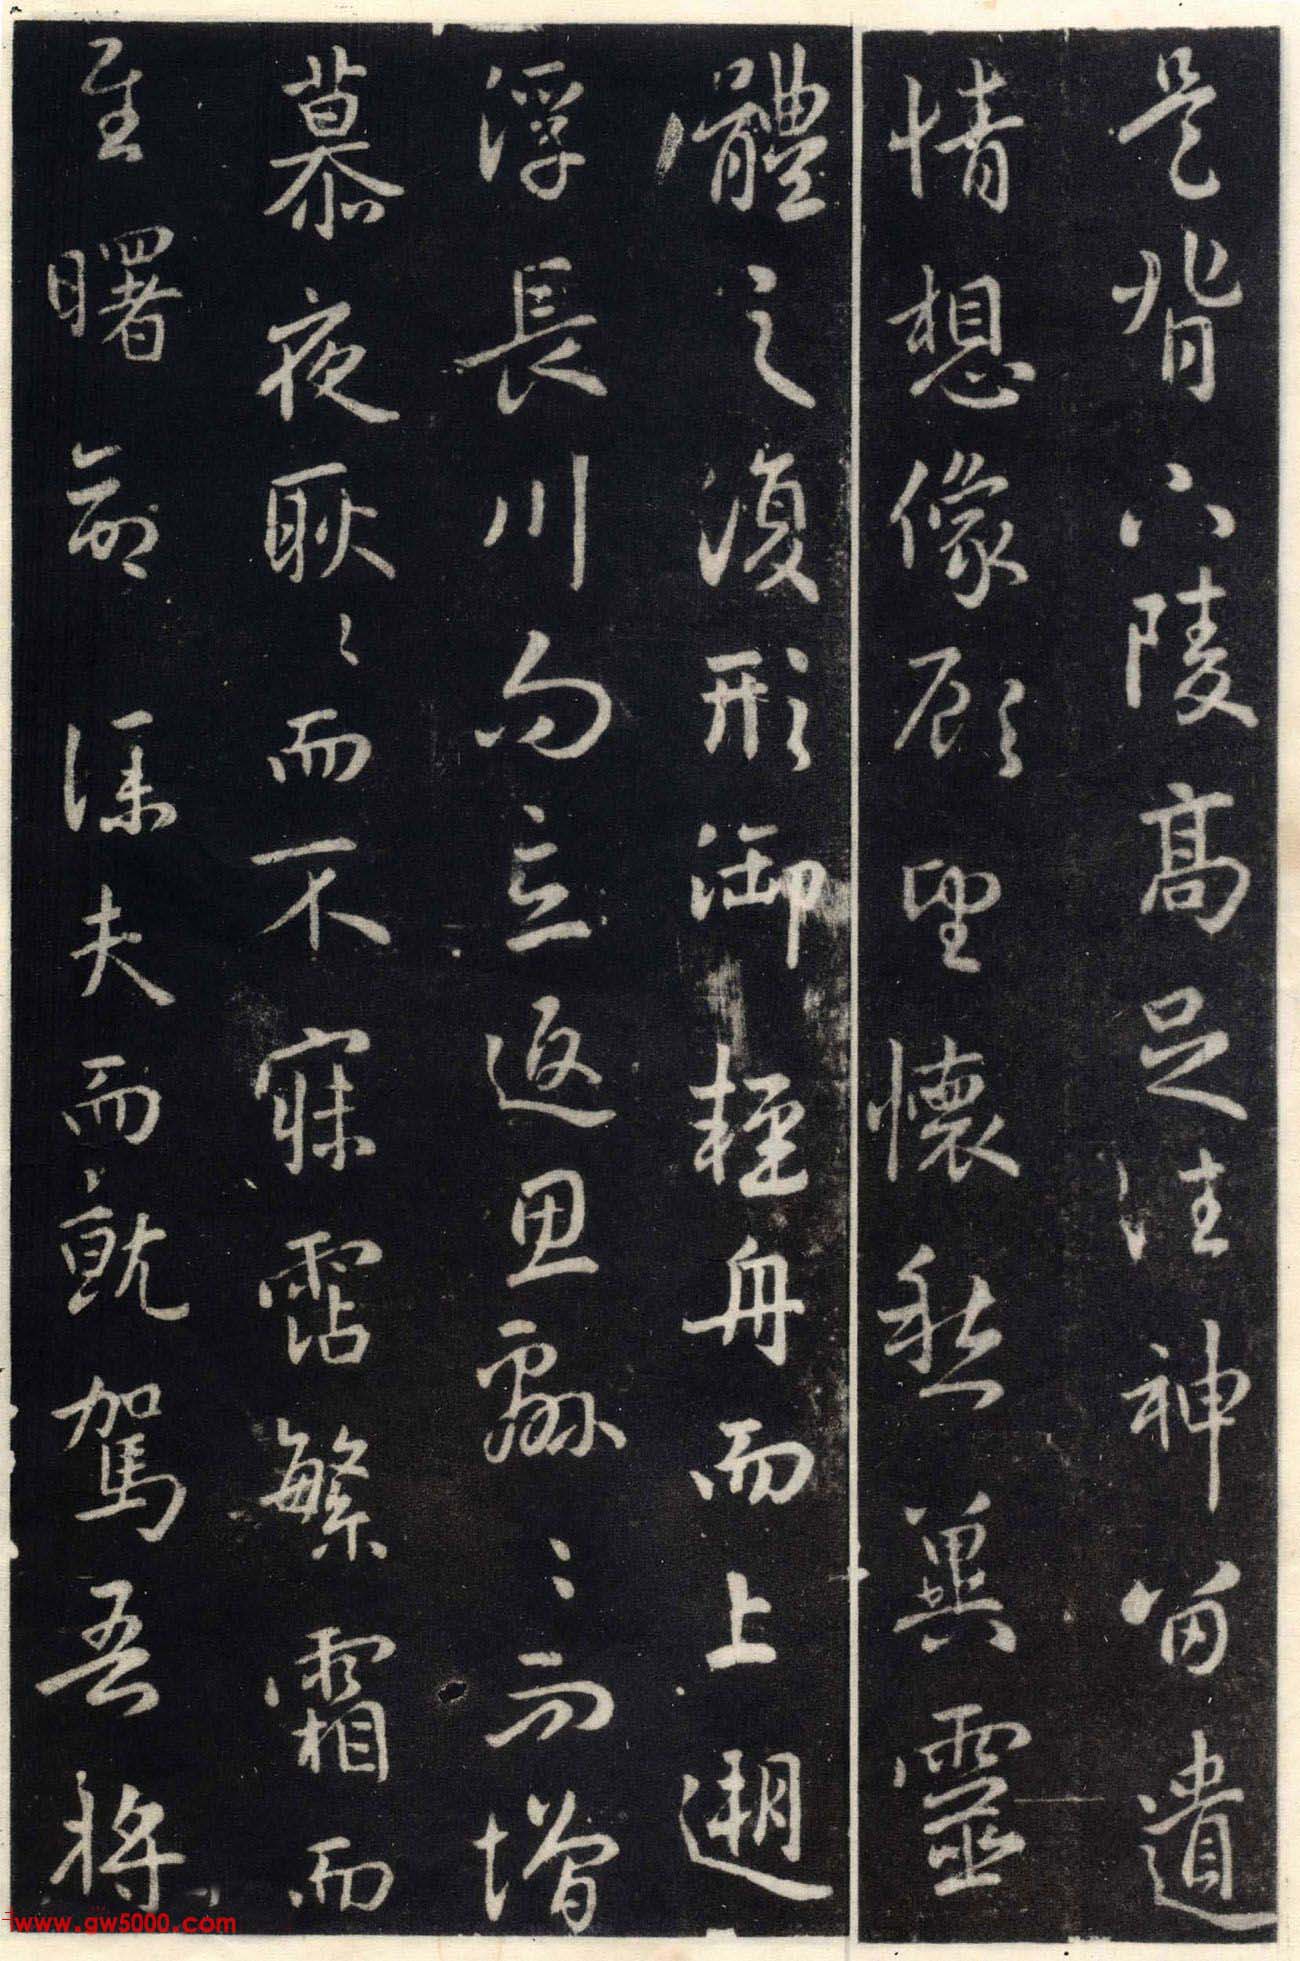 是背下陵高足往神留遺
情想像顧望懷愁冀靈
體之復形御輕舟而上遡
浮長川而忘返思緜〻而增
慕夜耿〻而不寐霑繁霜而
至曙命僕夫而就駕吾將
www.gw5000.com